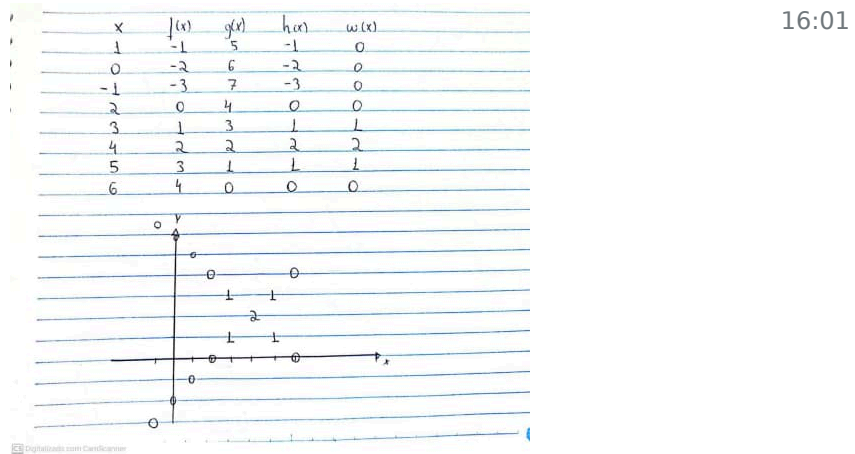 16:01
x f(x) g(x) h(x) w(x)
1 -1 5 -1 0
0 -2 6 -2 0
-1 -3 7 -3 0
2 0 4 0 0
3 1 3 1 1
4 2 2 2 2
5 3 1 1 1
6 4 0 0 0
y
0
0
0 0
1 1
2
1 1
0 0
x
0
0
0
CS Digitalizado com CamScanner